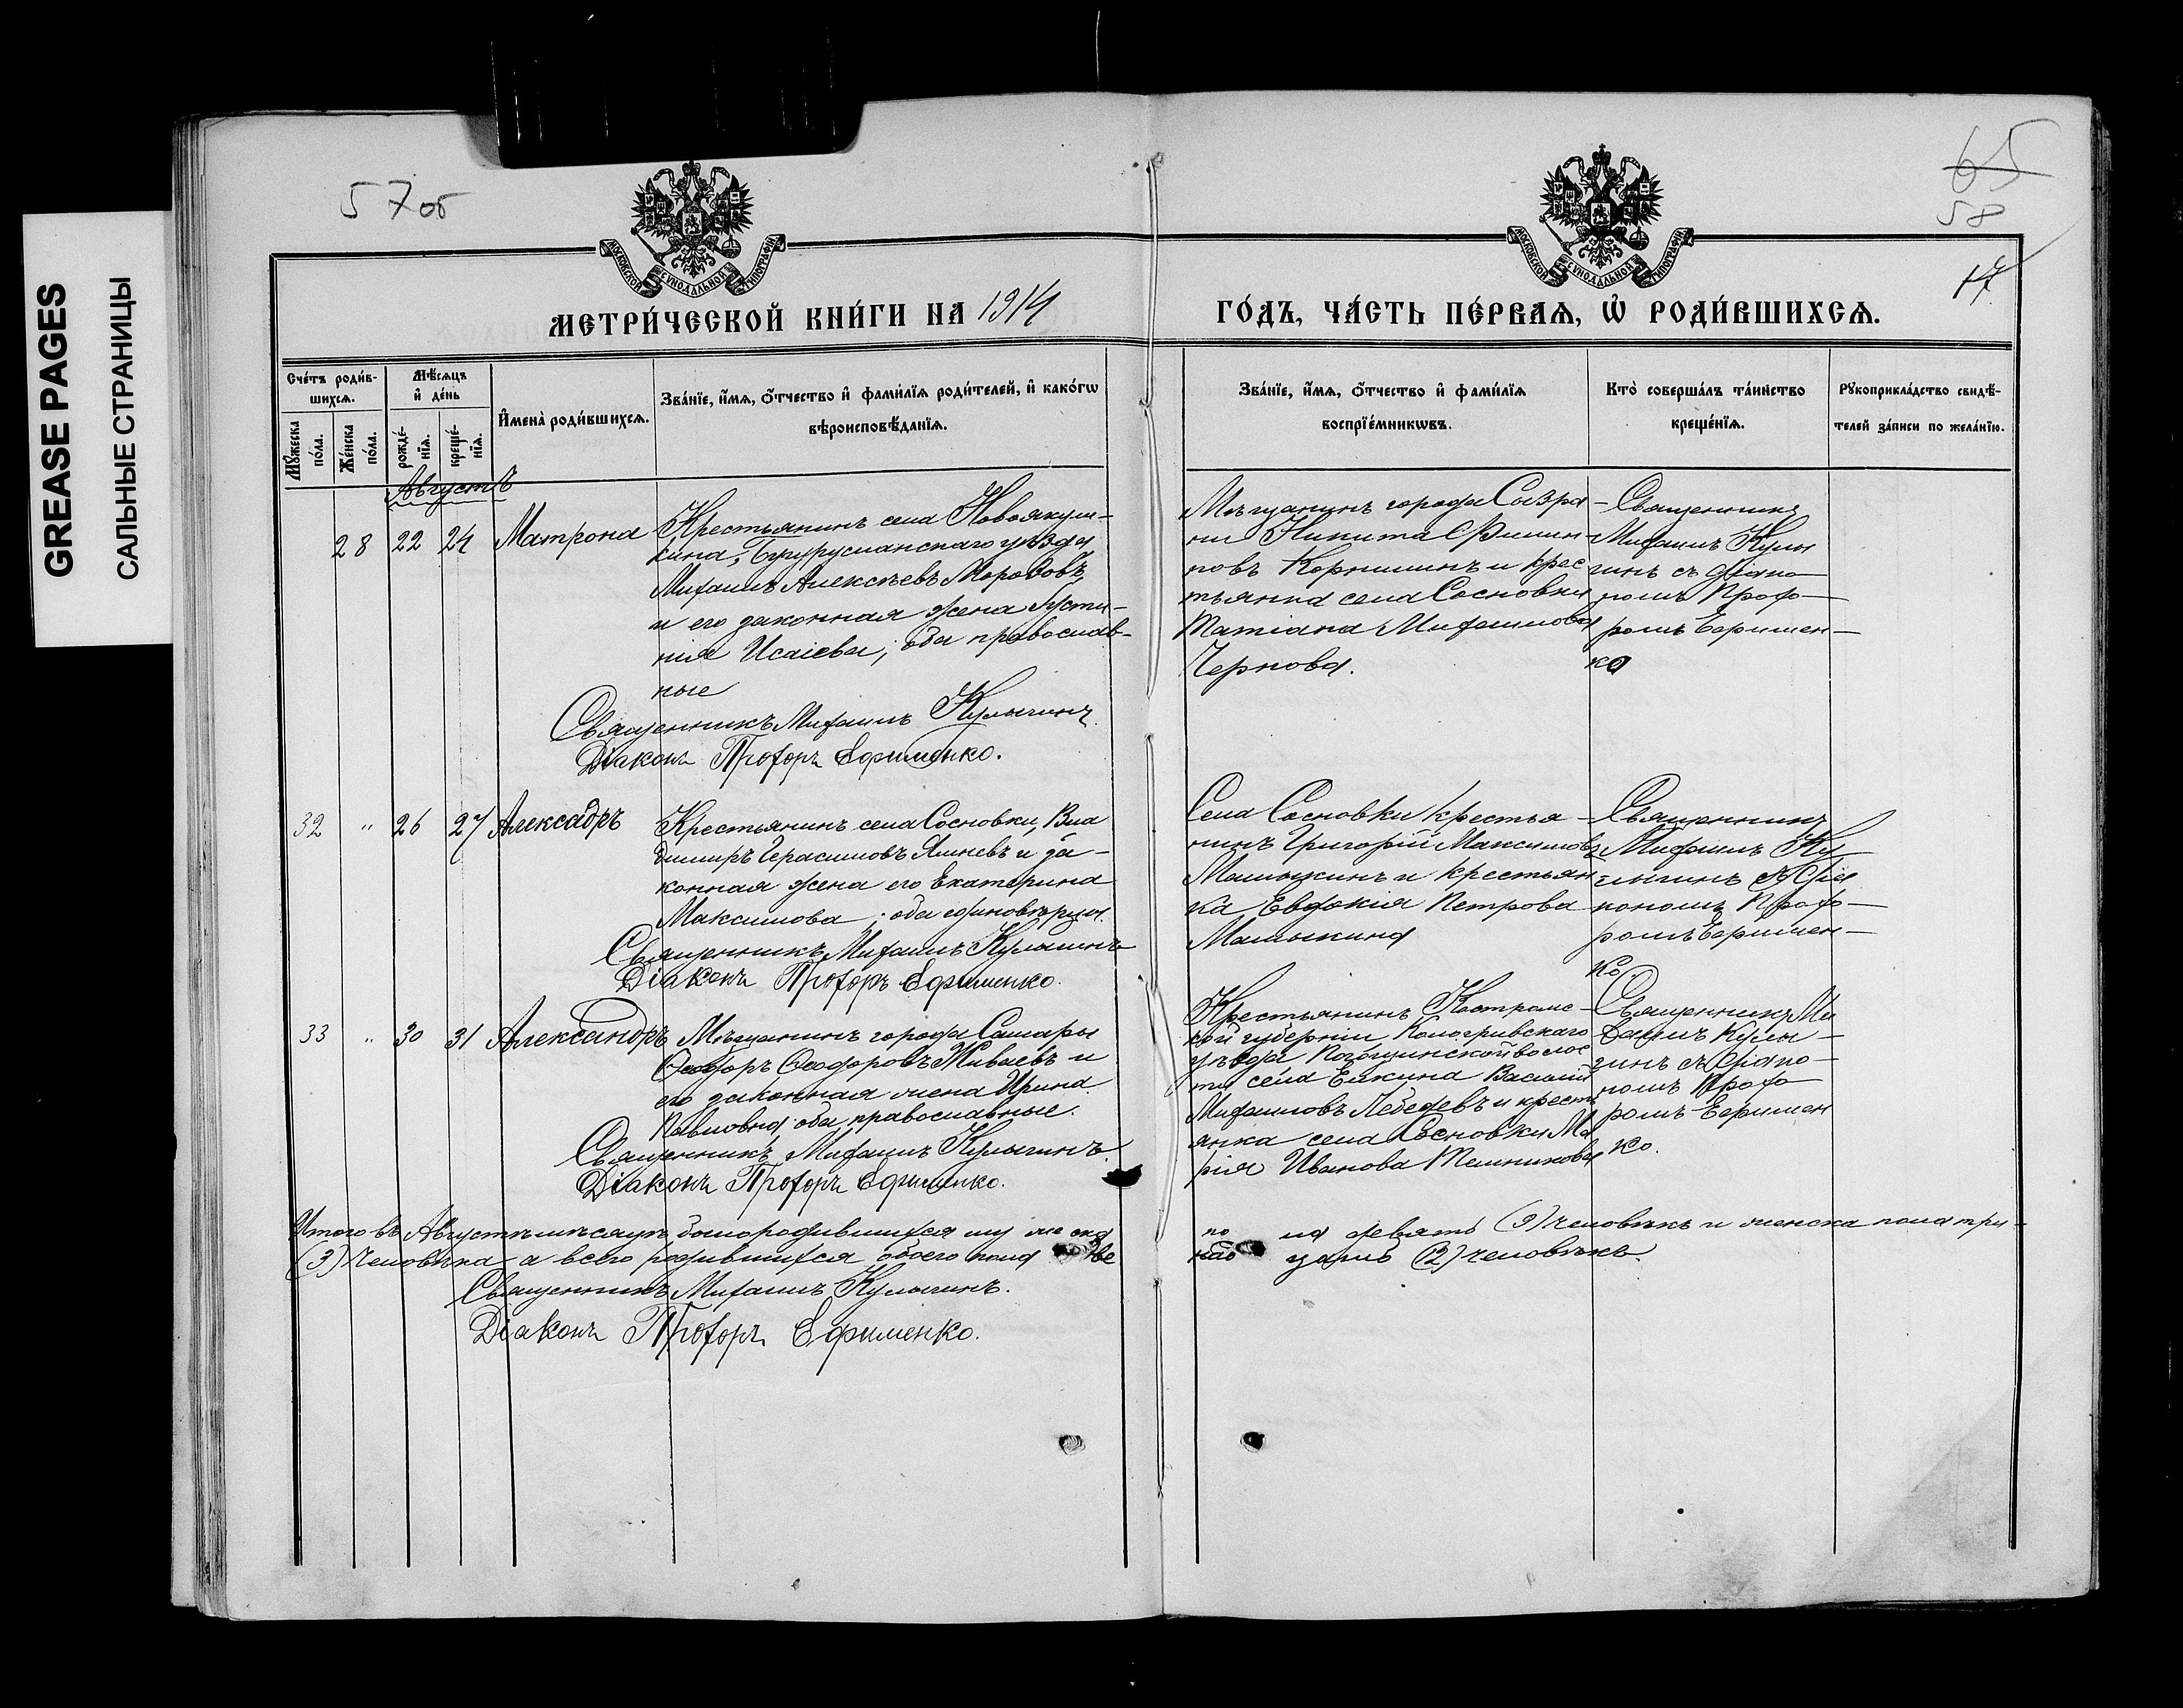 GREASE PAGES
САЛЬНЫЕ СТРАНИЦЫ
57об
65
58
17
МОСКОВСКОЙ СѴНОДАЛЬНОЙ ТИПОГРАФІИ
МОСКОВСКОЙ СѴНОДАЛЬНОЙ ТИПОГРАФІИ
МЕТРИ́ЧЕСКОЙ КНИ́ГИ НА 1914
ГО́ДЪ, ЧА́СТЬ ПЕ́РВАѦ, Ѡ҆ РОДИ́ВШИХСѦ.
Сче́тъ роди́в-
шихсѧ.
Мꙋ́жеска по́ла.
Же́нска по́ла.
Мѣ́сѧцъ и҆ де́нь
рожде́-нїѧ.
креще́-нїѧ.
И҆мена̀ роди́вшихсѧ.
Зва́нїе, и҆́мѧ, ѻ҆́тчество и҆ фами́лїѧ роди́телей, и҆ како́гѡ
вѣроисповѣ́данїѧ.
Зва́нїе, и҆́мѧ, ѻ҆́тчество и҆ фами́лїѧ
воспрїе́мникѡвъ.
Кто̀ соверша́лъ та́инство
креще́нїѧ.
Рꙋкоприкла́дство свидѣ́-
телей за́писи по жела́нїю.
Августъ
28 22 24 Матрона
Крестьянинъ села Новоякуш-
кина, Бугурусланскаго уѣзда
Михаилъ Алексѣевъ Морозовъ
и его законная жена Густи-
нія Исаіева, оба православ-
ные
Священникъ Михаилъ Кулыгинъ.
Діаконъ Прохоръ Ефименко.
Мѣщанинъ города Сызра-
ни Никита Филип-
повъ Корнишинъ и крес
тьянка села Сосновки
Татіана Михаилова
Чернова.
Священникъ
Михаилъ Кулы
гинъ съ діако-
номъ Прохо-
ромъ Ефимен-
ко
32 " 26 27 Алексадръ
Крестьянинъ села Сосновки, Вла
диміръ Герасимовъ Яшневъ и за-
конная жена его Екатерина
Максимова, оба единовѣрцы.
Священникъ Михаилъ Кулыгинъ
Діаконъ Прохоръ Ефименко.
Села Сосновки крестья-
нинъ Григорій Максимовъ
Малышкинъ и крестьян
ка Евдокія Петрова
Малышкина
Священникъ
Михаилъ Ку
лыгинъ съ діа
кономъ Прохо-
ромъ Ефимен-
ко.
33 " 30 31 Александръ
Мѣщанинъ города Самары
Ѳеодоръ Ѳеодоровъ Живаевъ и
его законная жена Ирина
Павловна, оба православные.
Священникъ Михаилъ Кулыгинъ.
Діаконъ Прохоръ Ефименко.
Крестьянинъ Костромс-
кой губерніи Кологривскаго
уѣзда волос
ти села Елкина Василій
Михаиловъ Лебедевъ и кресть
янка села Сосновки Ма
рія Иванова Темникова
Священникъ Ми
хаилъ Кулы-
гинъ съ діако-
номъ Прохо
ромъ Ефимен
ко.
Итого въ Августѣ мѣсяцѣ было родившихся мужска по ла девять (9) человѣкъ и женска пола три-
(3) человѣка а всего родившихся обоего пола две надцать (12) человѣкъ.
Священникъ Михаилъ Кулыгинъ.
Діаконъ Прохоръ Ефименко.